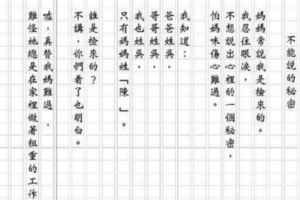 不能說的秘密
媽媽常說我是撿來的。
我忍住眼淚，
不想說出心裡的一個秘密，
怕媽咪傷心難過。
我知道：
爸爸姓吳，
哥哥姓吳，
我也姓吳，
只有媽媽姓『陳』。
誰是撿來的？
不講，你們看了也明白。
噓，真替我媽難過，
難怪她總是在家裡做著粗重的工作